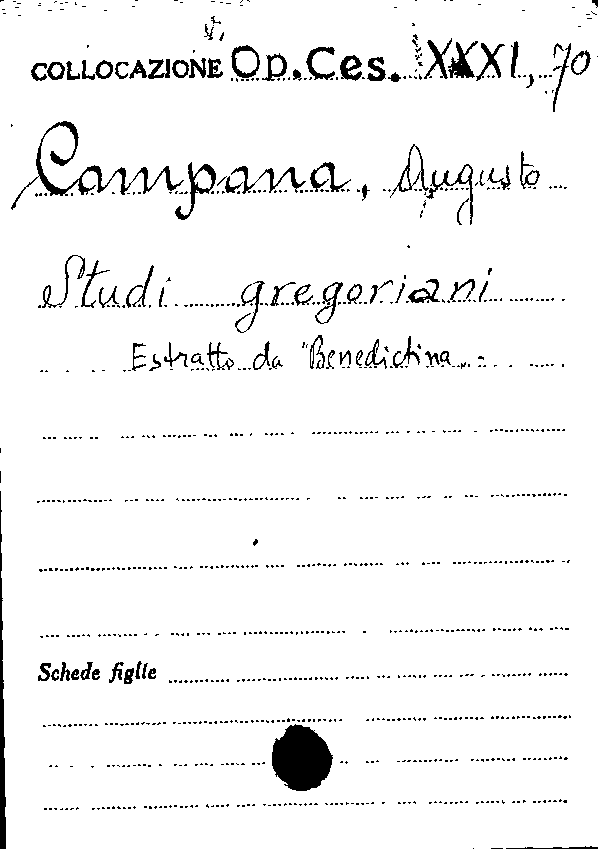 COLLOCAZIONE Op. Ces. XXXI, 70
Campana, Augusto
Studi gregoriani
Estratto da "Benedictina„.-
Schede figlie